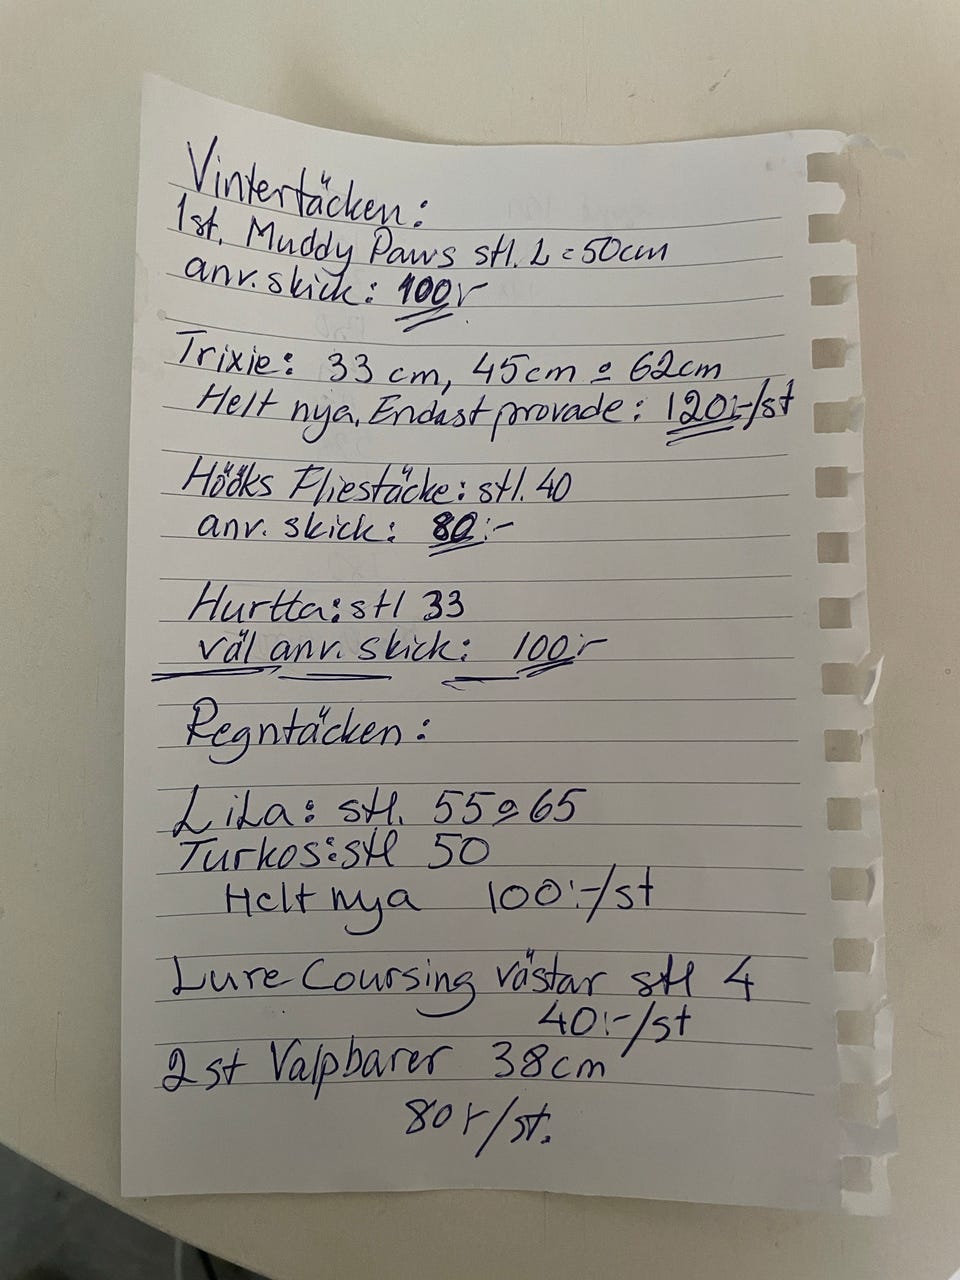 Vintertäcken:
1st. Muddy Paws stl. L = 50cm
anv. skick: 100:-
Trixie: 33 cm, 45cm o 62cm
Helt nya, Endast provade: 120:-/st
Hööks Fliestäcke: stl. 40
anv. skick: 80:-
Hurtta: stl 33
väl anv. skick: 100:-
Regntäcken:
Lila: stl. 55 o 65
Turkos: stl 50
Helt nya 100:-/st
Lure Coursing västar stl 4
40:-/st
2 st Valpbarer 38cm
80:-/st.